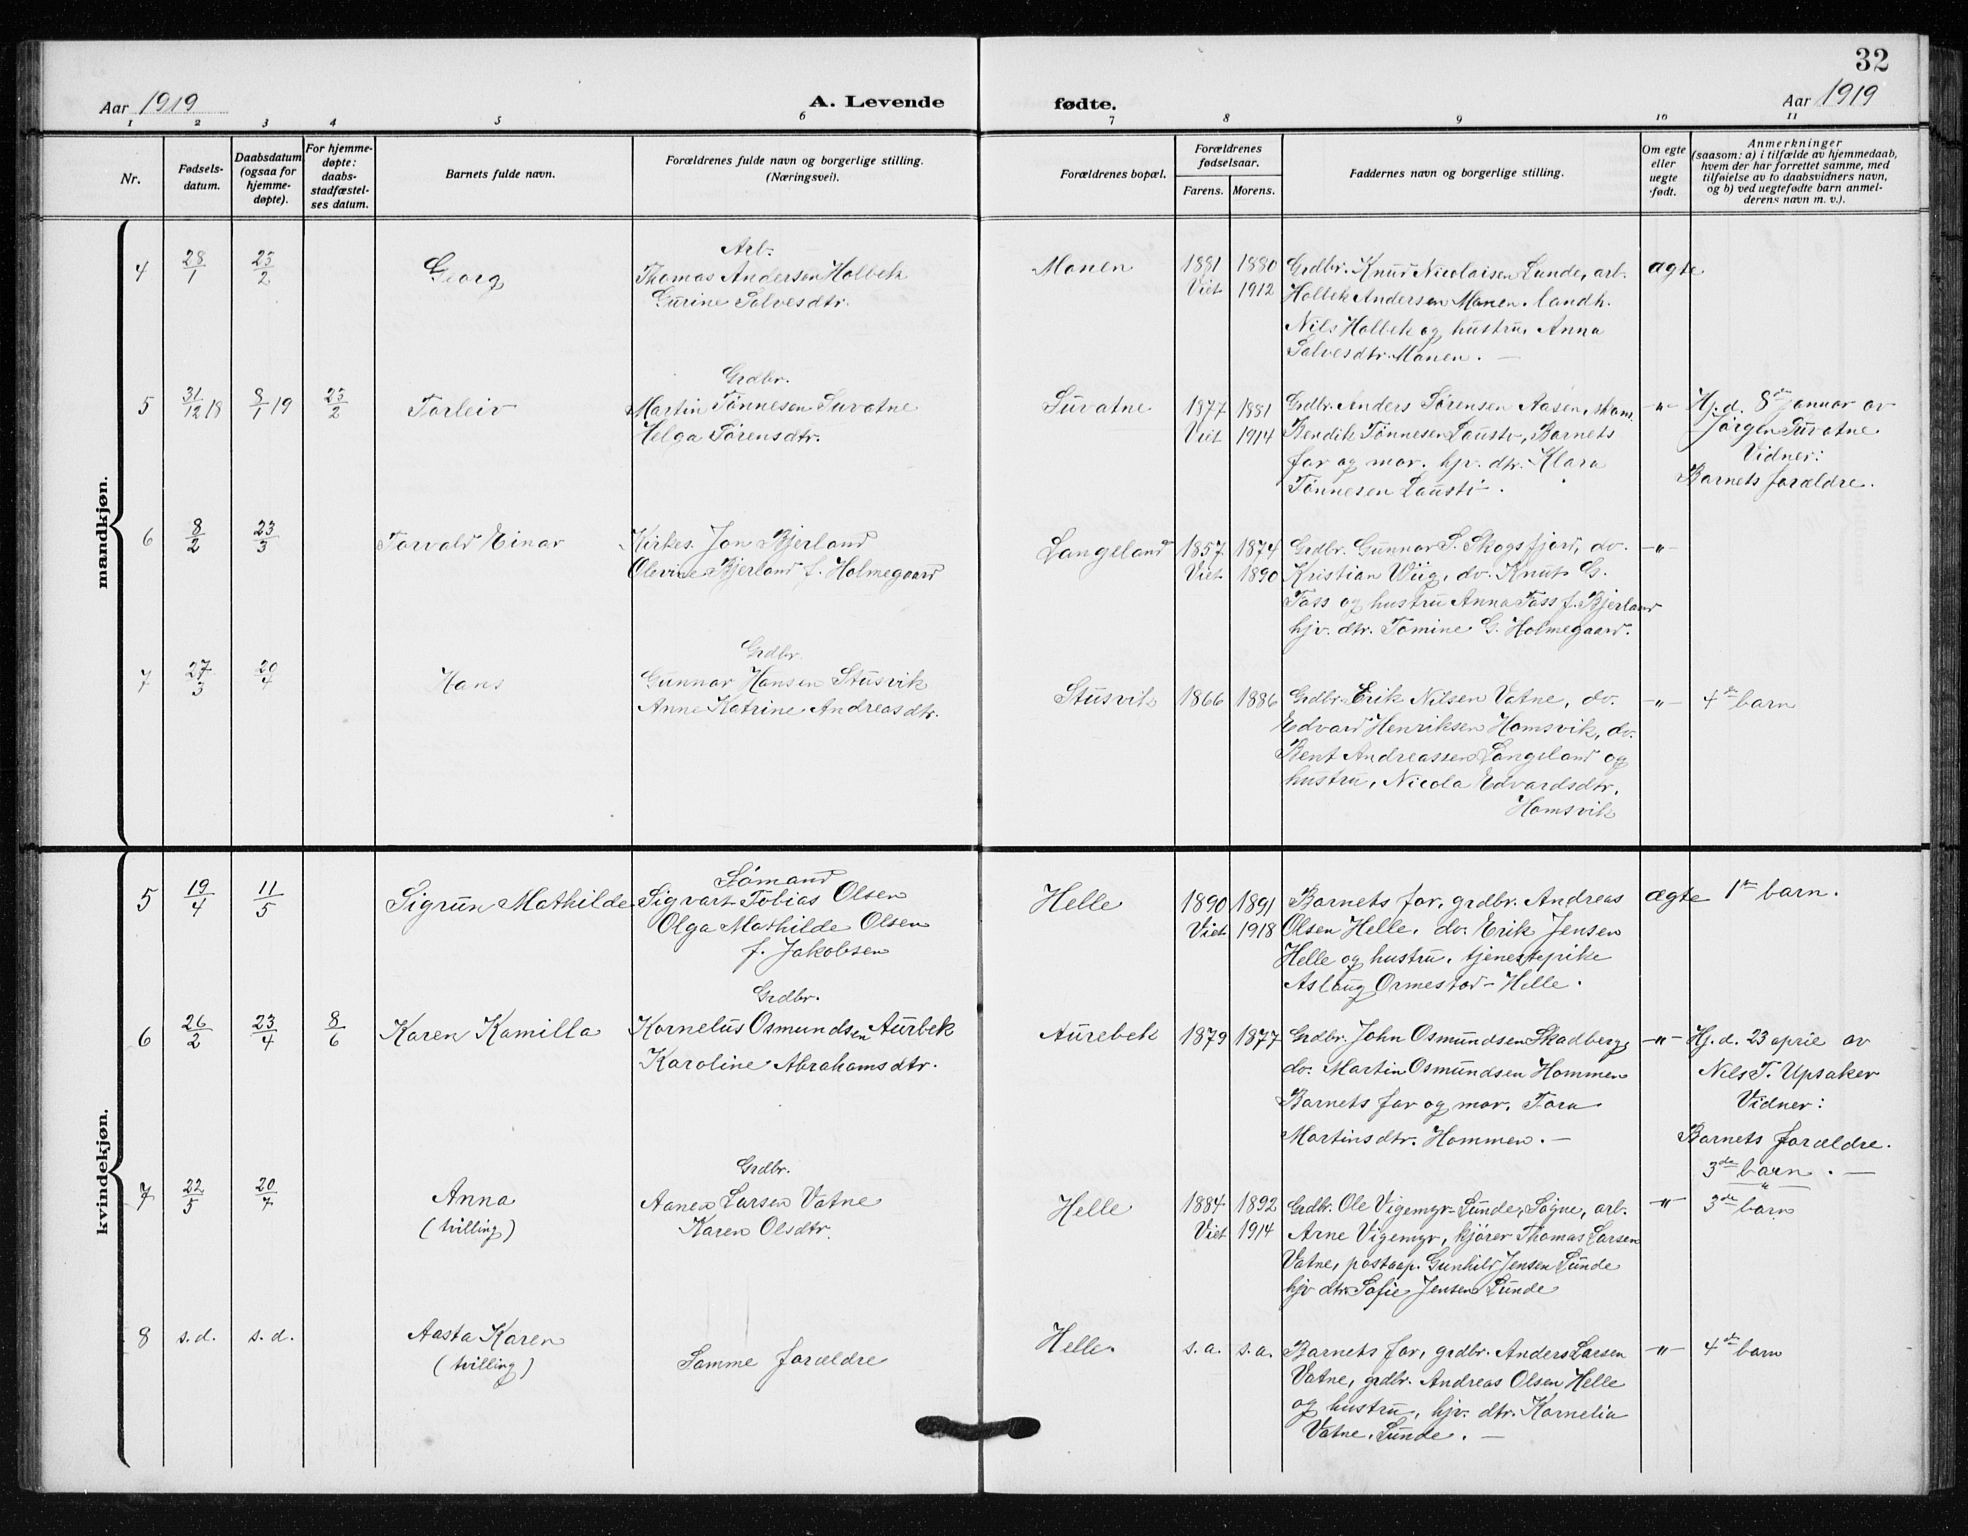 32
Aar 1919
A. Levende
fødte.
Aar 1919
1 2 3 4 5 6 7 8 9 10 11
Nr.
Fødsels-
datum.
Daabsdatum
(ogsaa for
hjemme-
døpte).
For hjemme-
døpte:
daabs-
stadfæstel-
ses datum.
Barnets fulde navn.
Forældrenes fulde navn og borgerlige stilling.
(Næringsvei).
Forældrenes bopæl.
Forældrenes
fødselsaar.
Farens. Morens.
Faddernes navn og borgerlige stilling.
Om egte
eller
uegte
født.
Anmerkninger
(saasom: a) i tilfælde av hjemmedaab,
hvem der har forrettet samme, med
tilføielse av to daabsvidners navn,
og b) ved uegtefødte barn anmel-
derens navn m. v.).
mandkjøn.
4
28/1
23/2
Georg
Arb.
Thomas Andersen Holbek
Gurine Salvesdtr.
Monen
1881 1880
Viet 1912
Grdbr. Knud Nicolaisen Lunde, arb.
Holbek Andersen Monen, landh.
Nils Holbek og hustru, Anna
Salvesdtr. Monen. —
ægte
5
31/12 18
8/1 19
23/2
Torleiv
Grdbr.
Martin Tönnesen Suvatne
Helga Törensdtr.
Suvatne
1877 1881
Viet 1914
Grdbr. Anders Sørensen Aasen,
Bendik Tönnesen Barnets
far og mor, hjv. dtr. Klara
Tönnesen
-"-
Hj. d. 8de januar av
Jørgen Suvatne
Vidner:
Barnets forældre.
6
8/2
23/3
Torvald Einar
Kirkes. Jon Bjerland
Olevine Bjerland f. Holmegaard
Langeland
1857 1874
Viet 1890
Grdbr. Gunnar S. Skogsfjord, do.
Kristian Wiig, do. Knut G.
Tass og hustru Anna Tass f. Bjerland
hjv. dtr. Tomine G. Holmegaard.
-"-
7
27/3
20/4
Hans
Grdbr.
Gunnar Hansen Stusvik
Anne Katrine Andreasdtr.
Stusvik
1866 1886
Grdbr. Erik Nilsen Vatne, do.
Edvard Henriksen Homsvik, do.
Bent Andreassen Langeland og
hustru, Nicola Edvardsdtr.
Homsvik
-"-
4de barn
kvindekjøn.
5
19/4
11/5
Sigrun Mathilde
Sømand
Sigvart Tobias Olsen
Olga Mathilde Olsen
f. Jakobsen
Helle
1890 1891
Viet 1918
Barnets far, grdbr. Andreas
Olsen Helle, do. Erik Jensen
Helle og hustru, tjenestepike
Aslaug Ormestad - Helle.
ægte
1ste barn.
6
26/2
23/4
8/6
Karen Kamilla
Grdbr.
Kornelus Osmundsen Aurbek
Karoline Abrahamsdtr.
Aurebek
1879 1877
Grdbr. John Osmundsen Skadberg,
do. Martin Osmundsen Hommen
Barnets far og mor, Tora
Martinsdtr. Hommen. —
-"-
Hj. d. 23 april av
Nils T. Upsaker
Vidner:
Barnets forældre.
3de barn. —
7
22/5
20/7
Anna
(tvilling)
Grdbr.
Aanen Larsen Vatne
Karen Olsdtr.
Helle
1884 1892
Viet 1914
Grdbr. Ole Vigemyr - Lunde, Søgne, arb.
Arne Vigemyr, kjører Thomas Larsen
Vatne, postaap. Gunhild Jensen Lunde
hjv dtr. Sofie Jensen Lunde
-"-
3de barn
8
s. d.
s. d.
Aasta Karen
(tvilling)
Samme forældre
Helle.
s. a. s. a.
Barnets far, grdbr. Anders Larsen
Vatne, grdbr. Andreas Olsen Helle
og hustru, hjv. dtr. Kornelia
Vatne, Lunde. —
-"-
4de barn